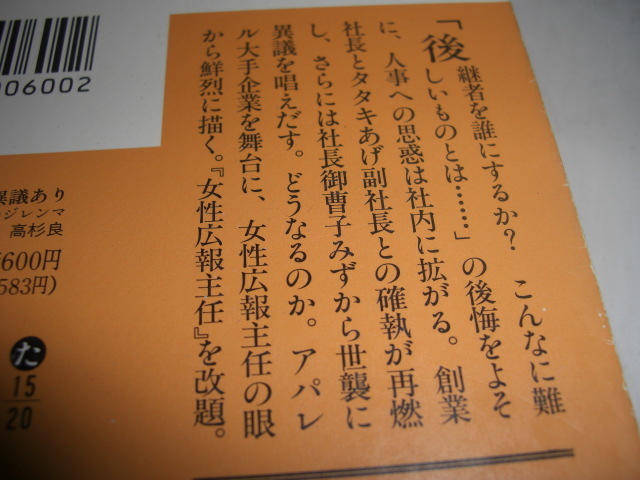 「後継者を誰にするか？　こんなに難
しいものとは……」の後悔をよそ
に、人事への思惑は社内に拡がる。創業
社長とタタキあげ副社長との確執が再燃
し、さらには社長御曹子みずから世襲に
異議を唱えだす。どうなるのか。アパレ
ル大手企業を舞台に、女性広報主任の眼
から鮮烈に描く。『女性広報主任』を改題。
06002
異議あり
ジレンマ
高杉良
600円
583円)
た
15
20